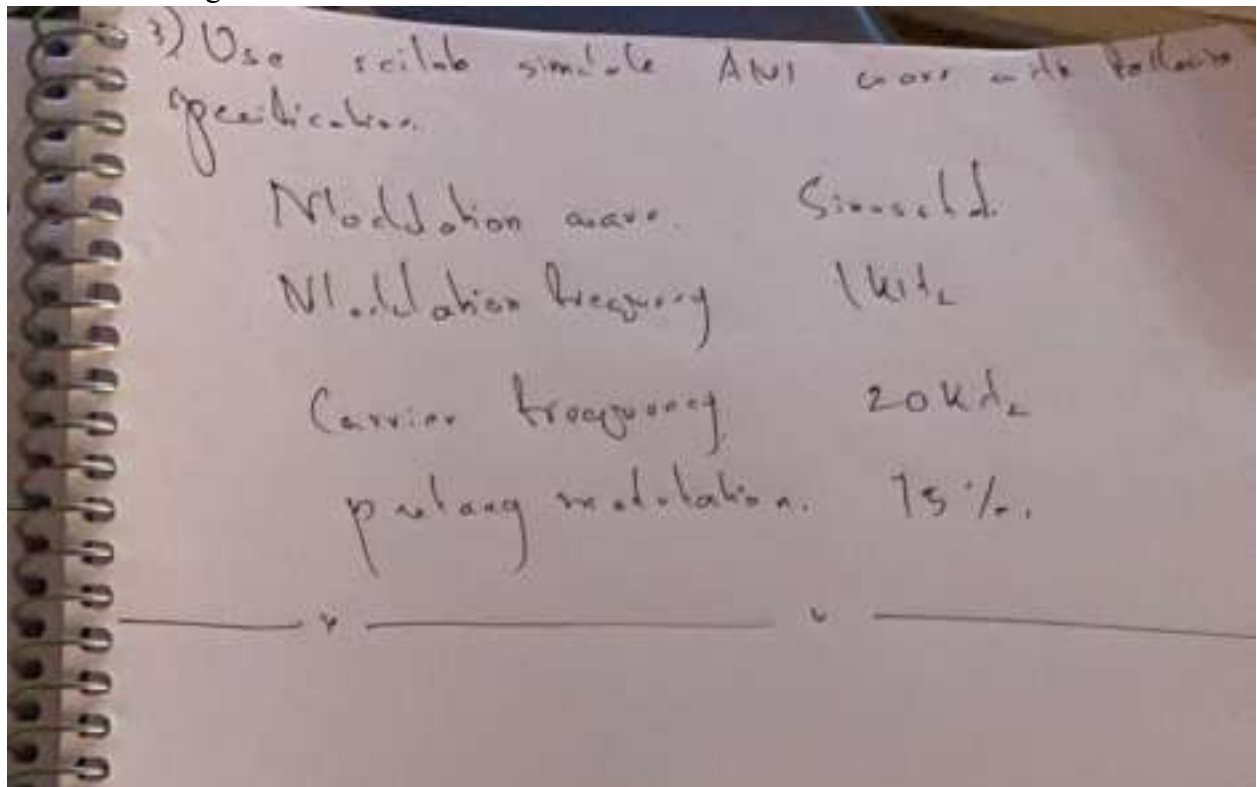 3) Use scilab simulate AM wave with following
specification.
Modulation wave. Sinusoidal.
Modulation frequency 1 kHz
Carrier frequency 20 kHz
modulation. 75%.